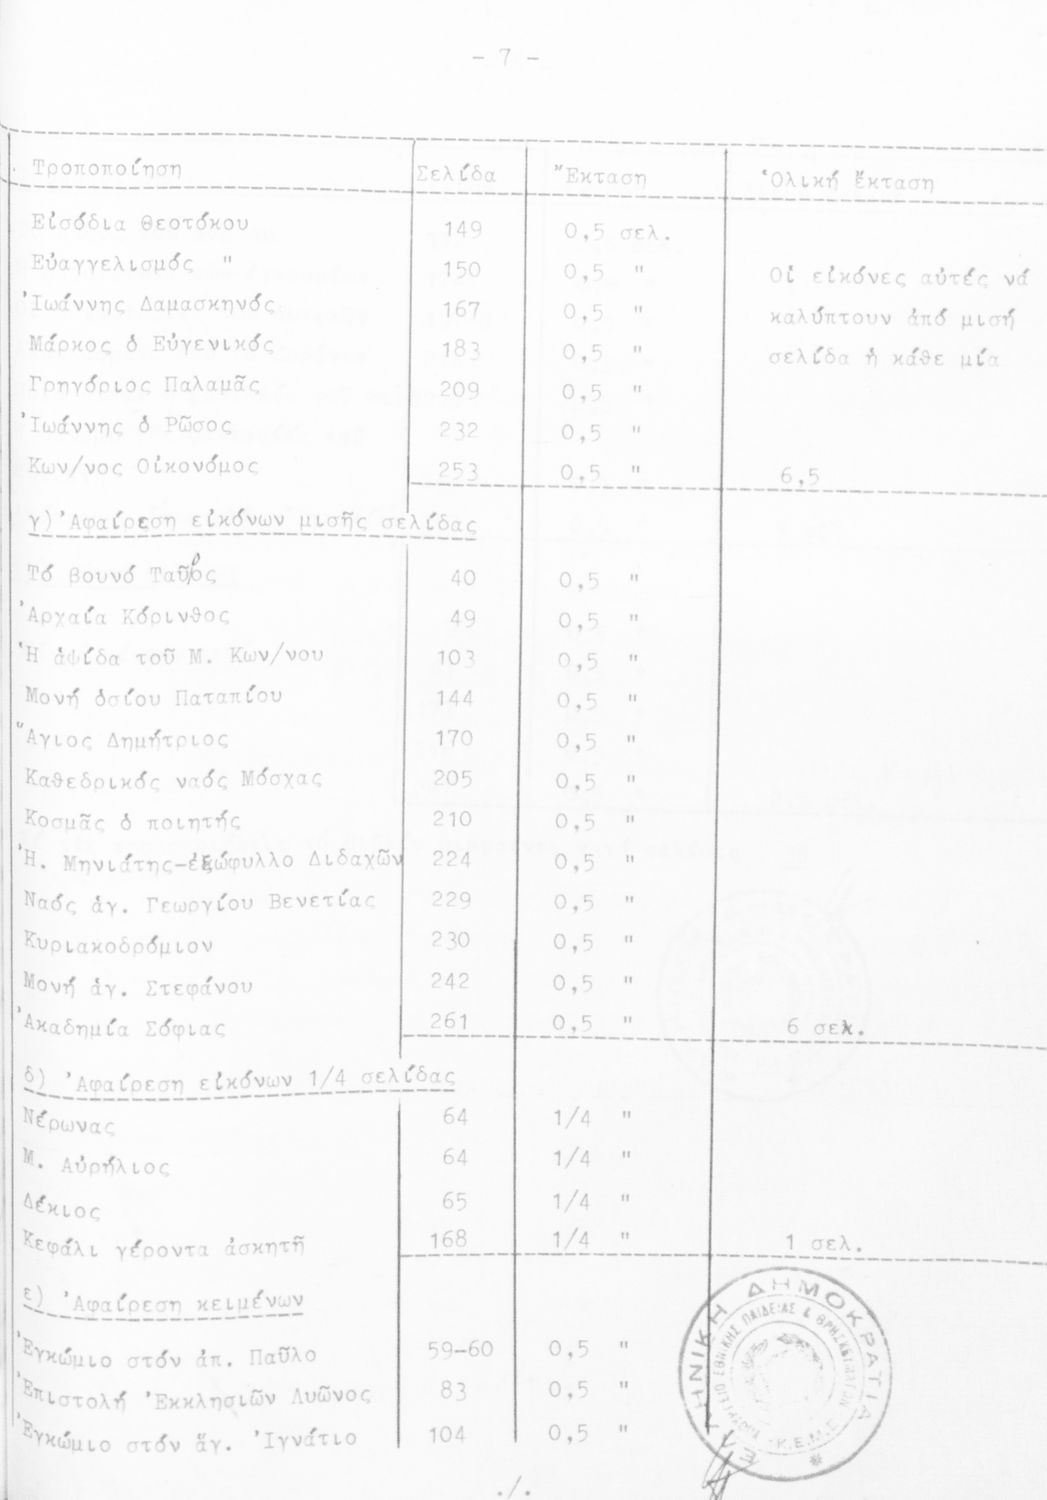 - 7 -
Τροποποίηση Σελίδα Ἔκταση Ὁλική ἔκταση
Εἰσόδια Θεοτόκου 149 0,5 σελ.
Εὐαγγελισμός " 150 0,5 " Οἱ εἰκόνες αὐτές νά
Ἰωάννης Δαμασκηνός 167 0,5 " καλύπτουν ἀπό μισή
Μάρκος ὁ Εὐγενικός 183 0,5 " σελίδα ἡ κάθε μία
Γρηγόριος Παλαμᾶς 209 0,5 "
Ἰωάννης ὁ Ρῶσος 232 0,5 "
Κων/νος Οἰκονόμος 253 0,5 " 6,5
γ) Ἀφαίρεση εἰκόνων μισῆς σελίδας
Τό βουνό Ταῦρος 40 0,5 "
Ἀρχαία Κόρινθος 49 0,5 "
Ἡ ἁψίδα τοῦ Μ. Κων/νου 103 0,5 "
Μονή ὁσίου Παταπίου 144 0,5 "
Ἅγιος Δημήτριος 170 0,5 "
Καθεδρικός ναός Μόσχας 205 0,5 "
Κοσμᾶς ὁ ποιητής 210 0,5 "
Ἠ. Μηνιάτης-ἐξώφυλλο Διδαχῶν 224 0,5 "
Ναός ἁγ. Γεωργίου Βενετίας 229 0,5 "
Κυριακοδρόμιον 230 0,5 "
Μονή ἁγ. Στεφάνου 242 0,5 "
Ἀκαδημία Σόφιας 261 0,5 " 6 σελ.
δ) Ἀφαίρεση εἰκόνων 1/4 σελίδας
Νέρωνας 64 1/4 "
Μ. Αὐρήλιος 64 1/4 "
Δέκιος 65 1/4 "
Κεφάλι γέροντα ἀσκητῆ 168 1/4 " 1 σελ.
ε) Ἀφαίρεση κειμένων
Ἐγκώμιο στόν ἀπ. Παῦλο 59-60 0,5 "
Ἐπιστολή Ἐκκλησιῶν Λυῶνος 83 0,5 "
Ἐγκώμιο στόν ἅγ. Ἰγνάτιο 104 0,5 "
ΕΛΛΗΝΙΚΗ ΔΗΜΟΚΡΑΤΙΑ
ΥΠΟΥΡΓΕΙΟ ΕΘΝΙΚΗΣ ΠΑΙΔΕΙΑΣ & ΘΡΗΣΚΕΥΜΑΤΩΝ
Κ.Ε.Μ.Ε
./.